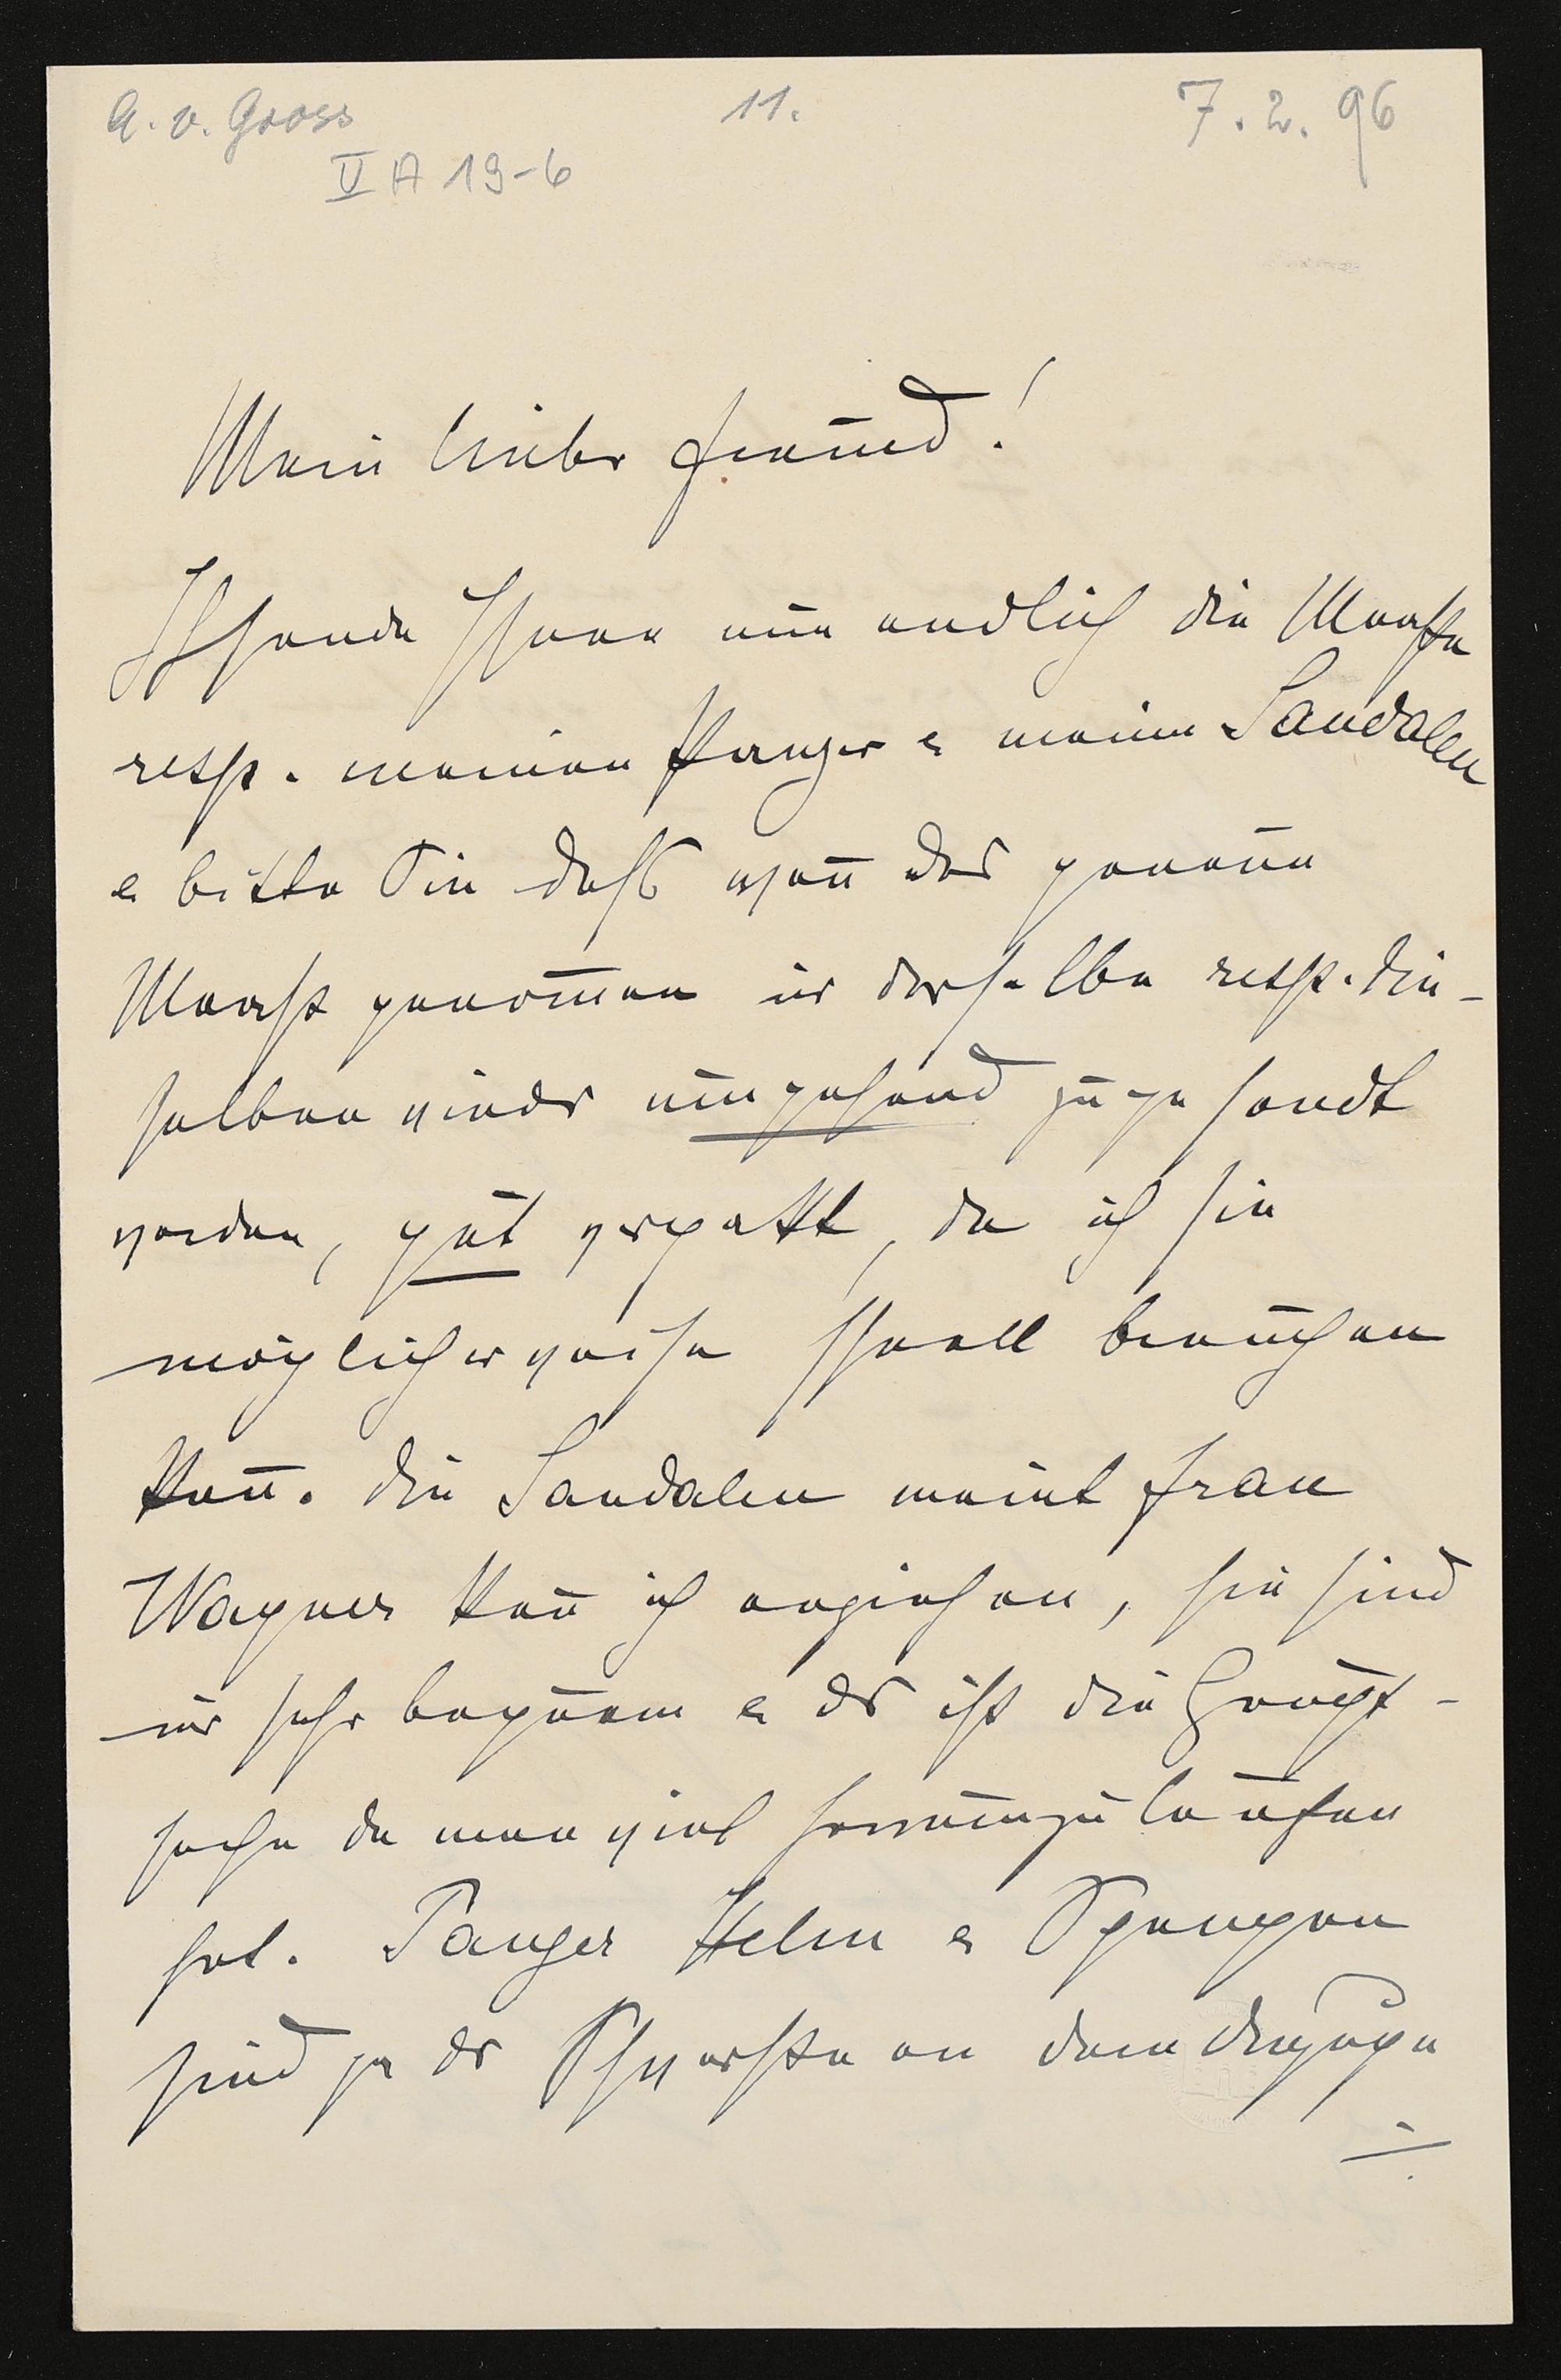 A. v. Gross 11. 7. 2. 96
V A 19-6
Mein lieber Freund!
Ich sende Ihnen nun endlich die Maaße
resp. meinen Panzer & meine Sandalen
& bitte Sie daß wenn das genaue
Maaß genom̅en mir derselbe resp. die-
selben wieder umgehend zugesandt
werden, gut verpakt, da ich sie
möglicherweise schnell brauchen
kan̅. Die Sandalen meint Frau
Wagner kan̅ ich anziehen, sie sind
mir sehr bequem & das ist die Haupt-
sache da man viel herumzulaufen
hat. Panzer Helm & Spangen
sind ja das Schwerste an dem Anzuge